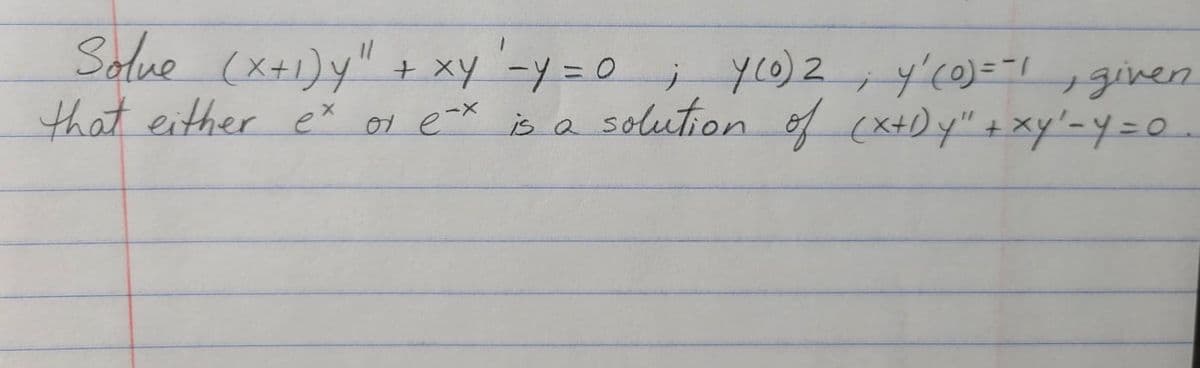 Solve (x+1)y" + xy' -y = 0 ; y(0) 2 , y'(0)=-1 , given
that either e^x or e^-x is a solution of (x+1)y" + xy'-y=0.